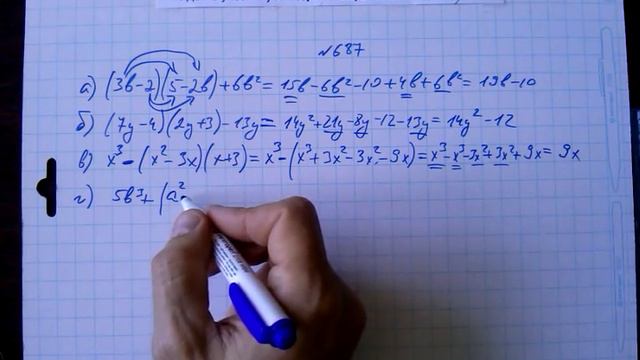 №687
а) (3b-2)(5-2b)+6b²=15b-6b²-10+4b+6b²=19b-10
б) (7y-4)(2y+3)-13y=14y²+21y-8y-12-13y=14y²-12
в) x³-(x²-3x)(x+3)=x³-(x³+3x²-3x²-9x)=x³-x³-3x²+3x²+9x=9x
г) 5b³+(a²